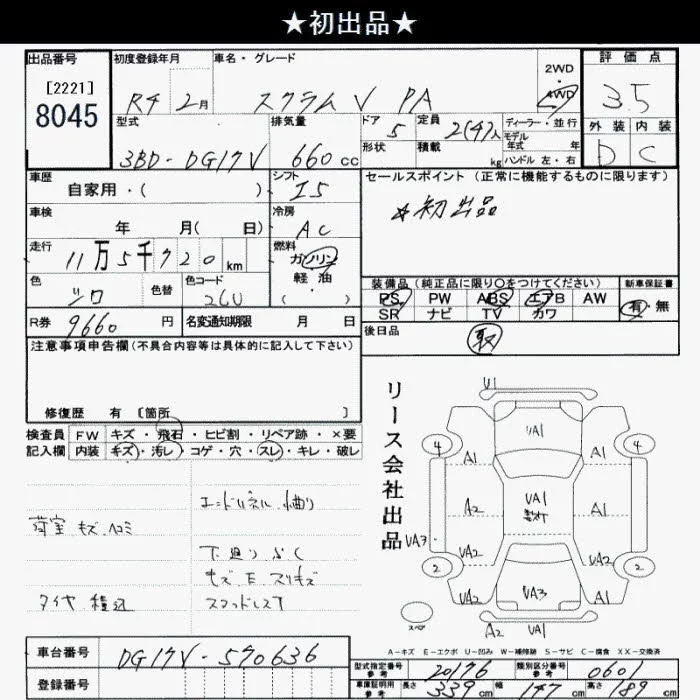 ★初出品★
出品番号 初度登録年月 車名・グレード 2WD 4WD 評価点
[2221]
8045
R4 2月 スクラム V PA 3.5
型式 排気量 ドア 定員 ディーラー・並行 外装 内装
5 2(4)人 モデル年式 年
3BD-DG17V 660cc 形状 積載 kg ハンドル 左・右 D C
車歴 シフト セールスポイント(正常に機能するものに限ります)
自家用・( ) I5
☆初出品
車検 冷房
年 月( 日) AC
走行 燃料
11万5千720km ガソリン
軽油
( ・ )
色 色替 色コード 装備品(純正品に限り○をつけてください) 新車保証書
シロ 26U PS PW ABS エアB AW 有・無
SR ナビ TV カワ
R券 9660円 名変通知期限 月 日 後日品
取
注意事項申告欄(不具合内容等は具体的に記入して下さい)
修復歴 有 [箇所 ]
検査員 FW キズ・飛石・ヒビ割・リペア跡・×要
記入欄 内装 キズ・汚レ・コゲ・穴・スレ・キレ・破レ
荷室 キズ.ヘコミ
タイヤ 積込
エンドパネル 小曲り
下廻り
キズ.E スリキズ
リース会社出品
U1
UA1
4 4
A1 A1
A2 UA1 A1
UA3
UA2 UA2
2 2
UA2 UA3 A1
スペア
A2 UA1
A-キズ E-エクボ U-凹み W-補修跡 S-サビ C-腐食 XX-交換済
車台番号 DG17V-570636
登録番号
型式指定番号 参考 20176 類別区分番号 参考 0601
車庫証明用 参考 長さ 339cm 幅 147cm 高さ 189cm